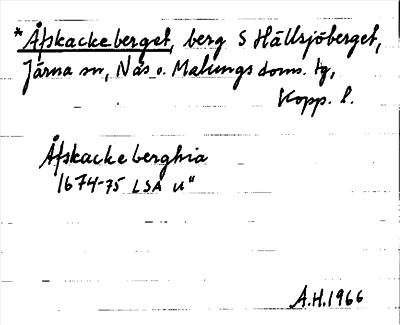 *Åfskackeberget, berg S Hällsjöberget,
Järna sn, Nås o. Malungs doms. tg,
Kopp. l.
Åfskackeberghia
1674-75 LSA U"
A.H. 1966